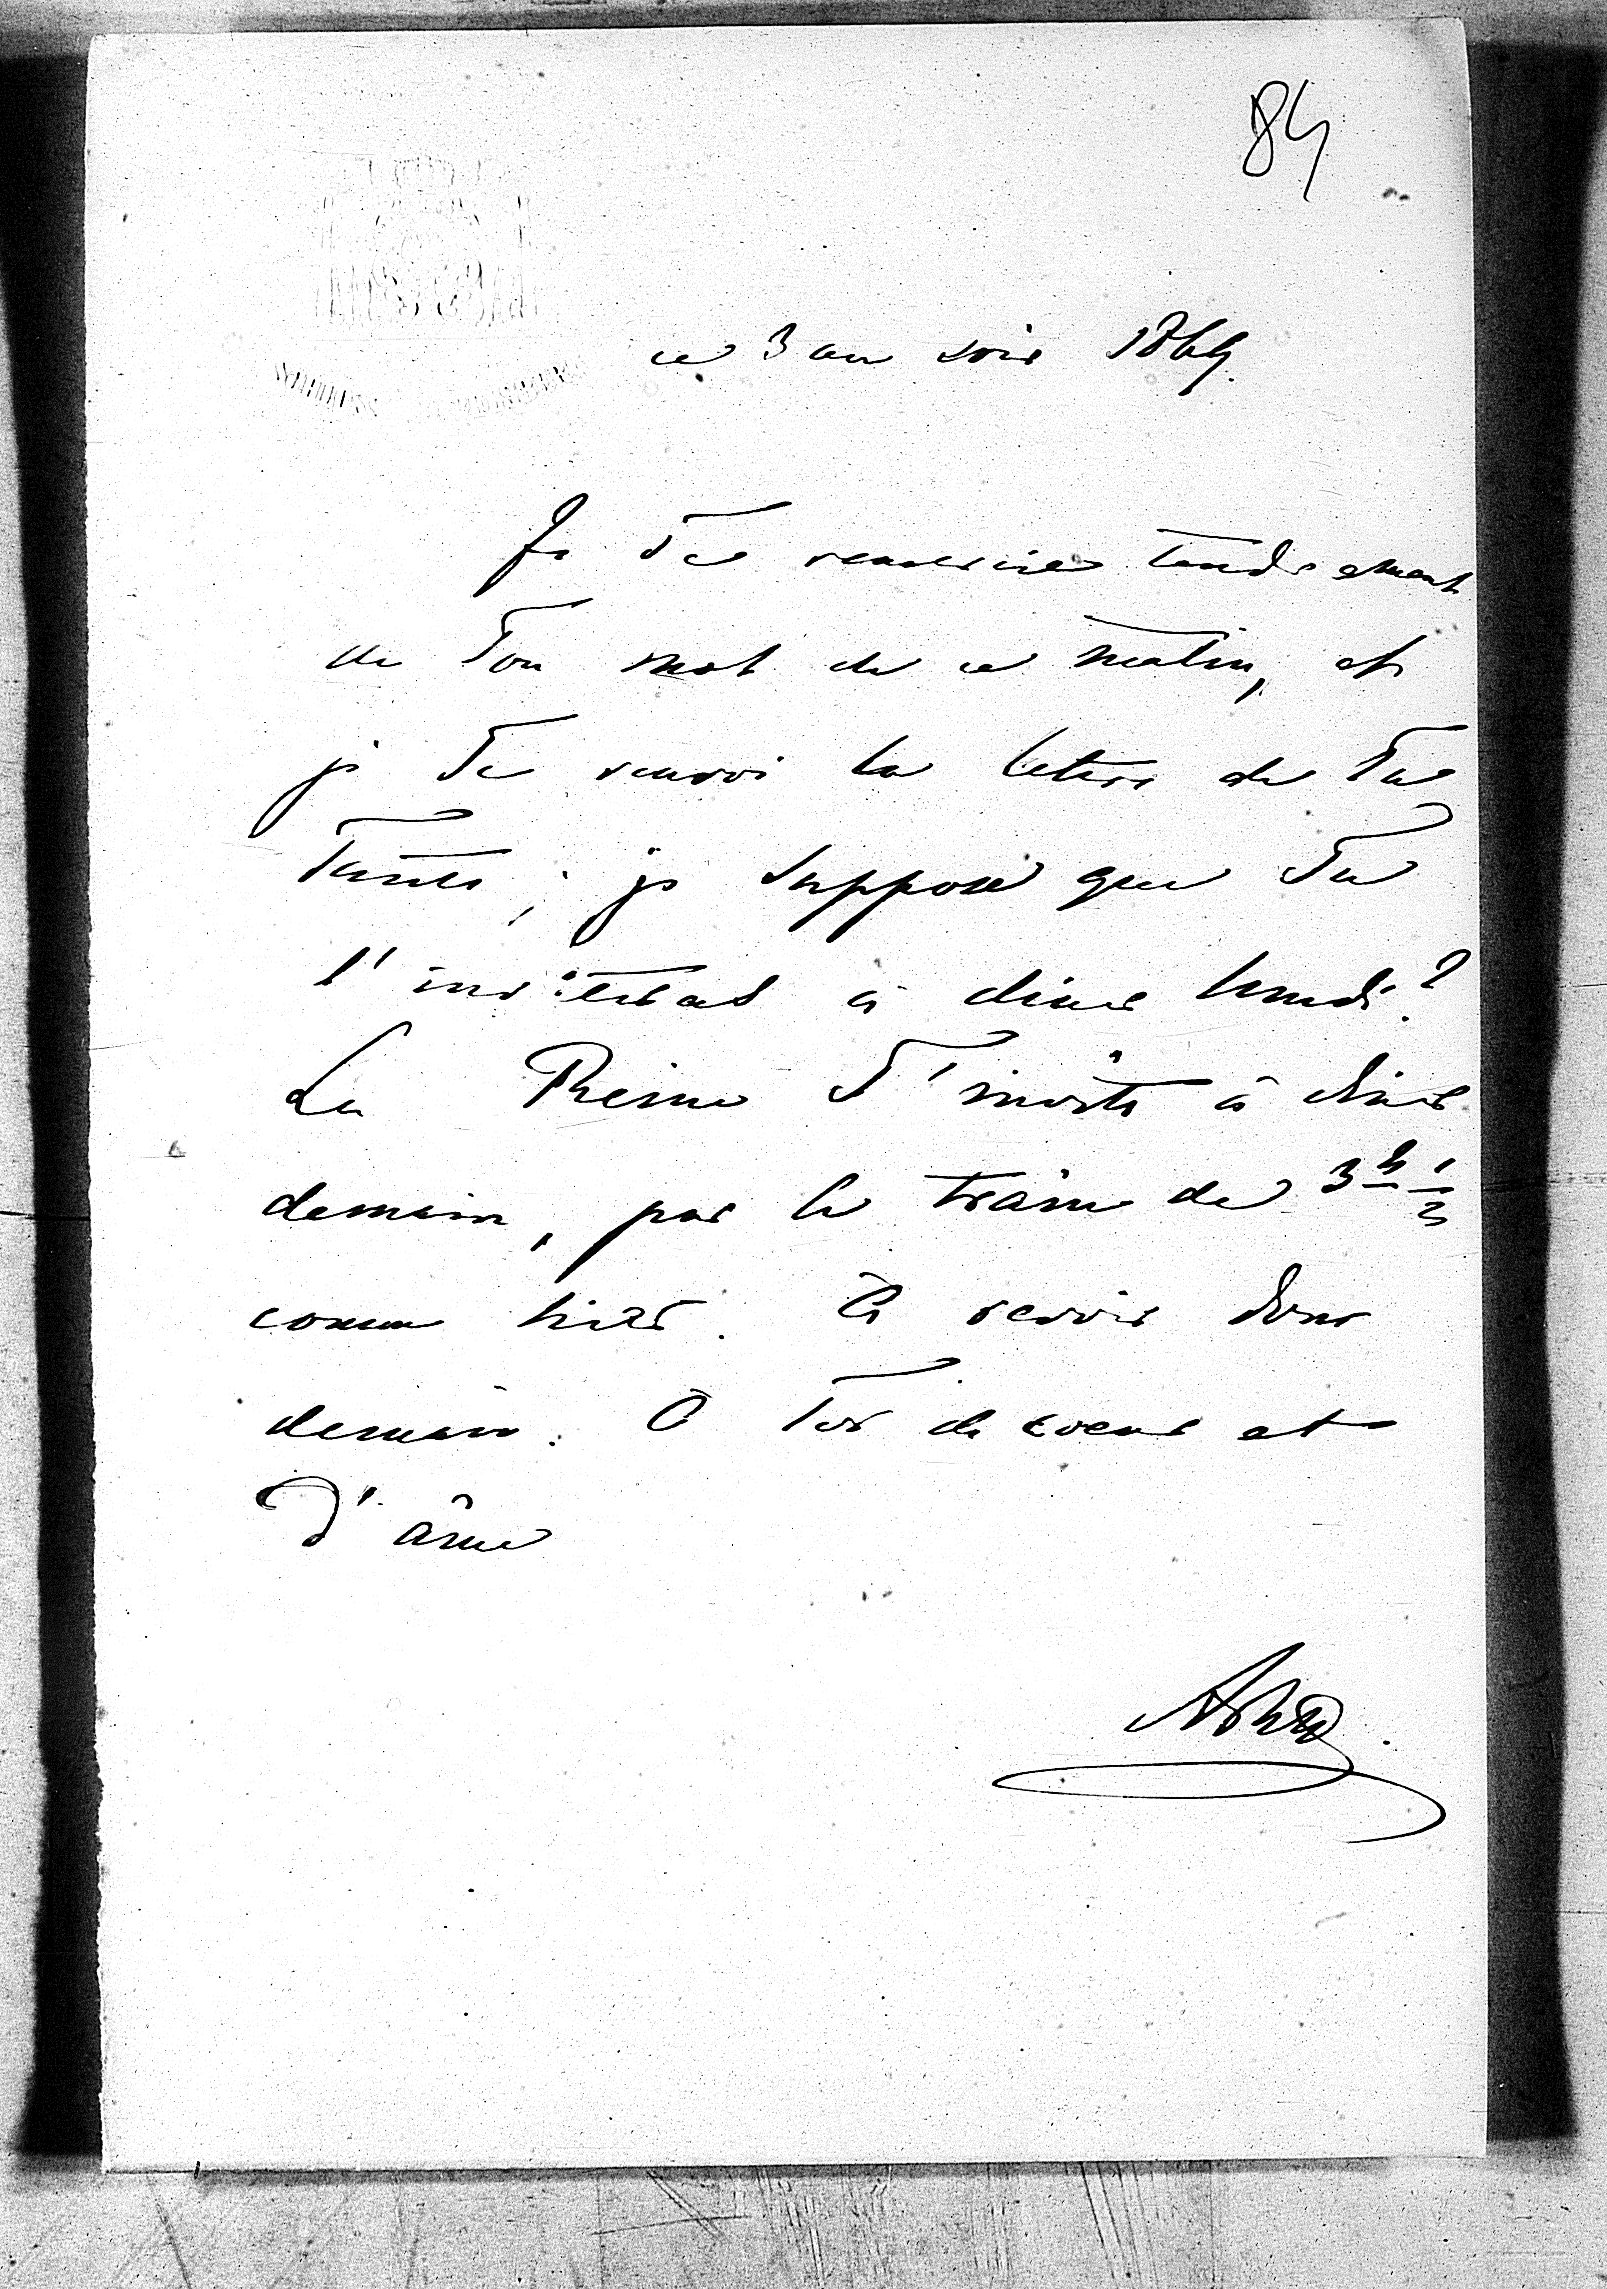 84
ce 3 au soir 1869.
Je Te remercie tendrement
de Ton mot de ce matin, et
je Te renvoi la lettre de Ta
Tante ; je suppose que Tu
l'inviteras à diner lundi ?
La Reine T'invite à diner
demain, par le train de 3 h 1/2
comme hier. A revoir donc
demain. A Toi de coeur et
d'âme